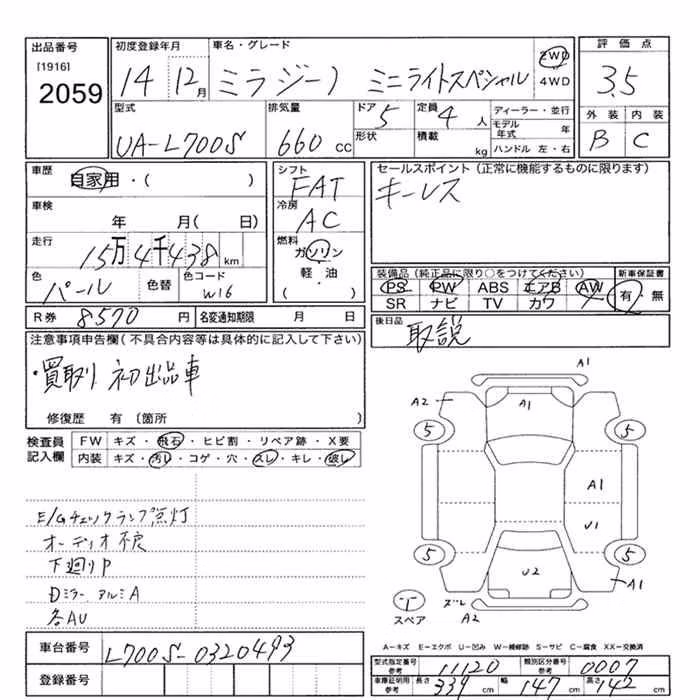 出品番号
[1916]
2059
初度登録年月
14 12月
車名・グレード
ミラジーノ ミニライトスペシャル
2WD
4WD
評価点
3.5
外装 内装
B C
型式
UA-L700S
排気量
660 cc
ドア 5
形状
定員 4 人
積載 kg
ディーラー・並行
モデル年式 年
ハンドル 左・右
車歴
自家用・( )
車検
年 月( 日)
走行
15万4千438km
色
パール
色替
色コード
W16
シフト
FAT
冷房
AC
燃料
ガソリン
軽・油
( )
セールスポイント(正常に機能するものに限ります)
キーレス
装備品(純正品に限り○をつけてください) 新車保証書
PS PW ABS エアB AW 有・無
SR ナビ TV カワ
R券 8570 円 名変通知期限 月 日
後日品
取説
注意事項申告欄(不具合内容等は具体的に記入して下さい)
・買取り 初出品車
修復歴 有〔箇所
検査員記入欄
FW キズ・飛石・ヒビ割・リペア跡・X要
内装 キズ・汚れ・コゲ・穴・スレ・キレ・破レ
E/Gチェックランプ点灯
オーディオ不良
下廻りP
Dミラー アルミA
各AU
A1
A2
A1
5
5
A1
U1
5
5
U2
A1
T
スペア
ズレ
A2
A-キズ E-エクボ U-凹み W-補修跡 S-サビ C-腐食 XX-交換済
車台番号 L700S-0320493
登録番号
型式指定番号 参考 11120 類別区分番号 参考 0007
車庫証明用 参考 長さ 339 cm 幅 147 cm 高さ 142 cm